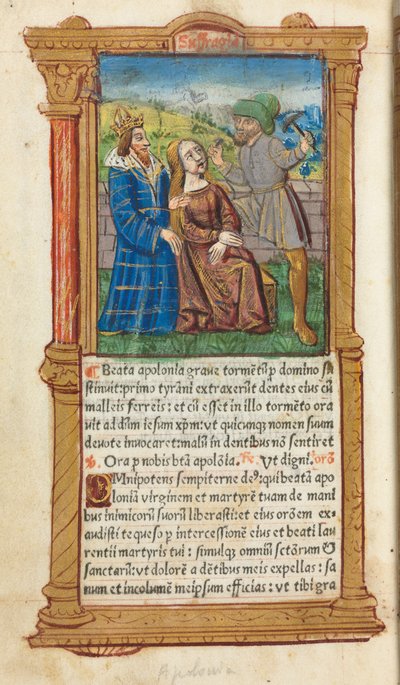 Suffragia
Beata apolonia grave tormētū p domino su
stinuit: primo tyrāni extraxerūt dentes eius cū
malleis ferreis: et cū esset in illo tormēto ora
vit ad dñm iesum xpm: vt quicunqȝ nomen suum
devote invocaret: malū in dentibus nō sentiret
℣. Ora p nobis btā apolōia. ℟. Vt digni. orō
OMnipotens sempiterne deꝰ: qui beatā apo
loniā virginem et martyrē tuam de mani
bus inimicorū suorū liberasti: et eius orōem ex-
audisti te queso p intercessionē eius et beati lau
rentii martyris tui: simulqȝ omniū sctōrum &
sanctarū: vt dolorē a dētibus meis expellas: sa
num et incolumē meipsum efficias: vt tibi gra
Apolonia